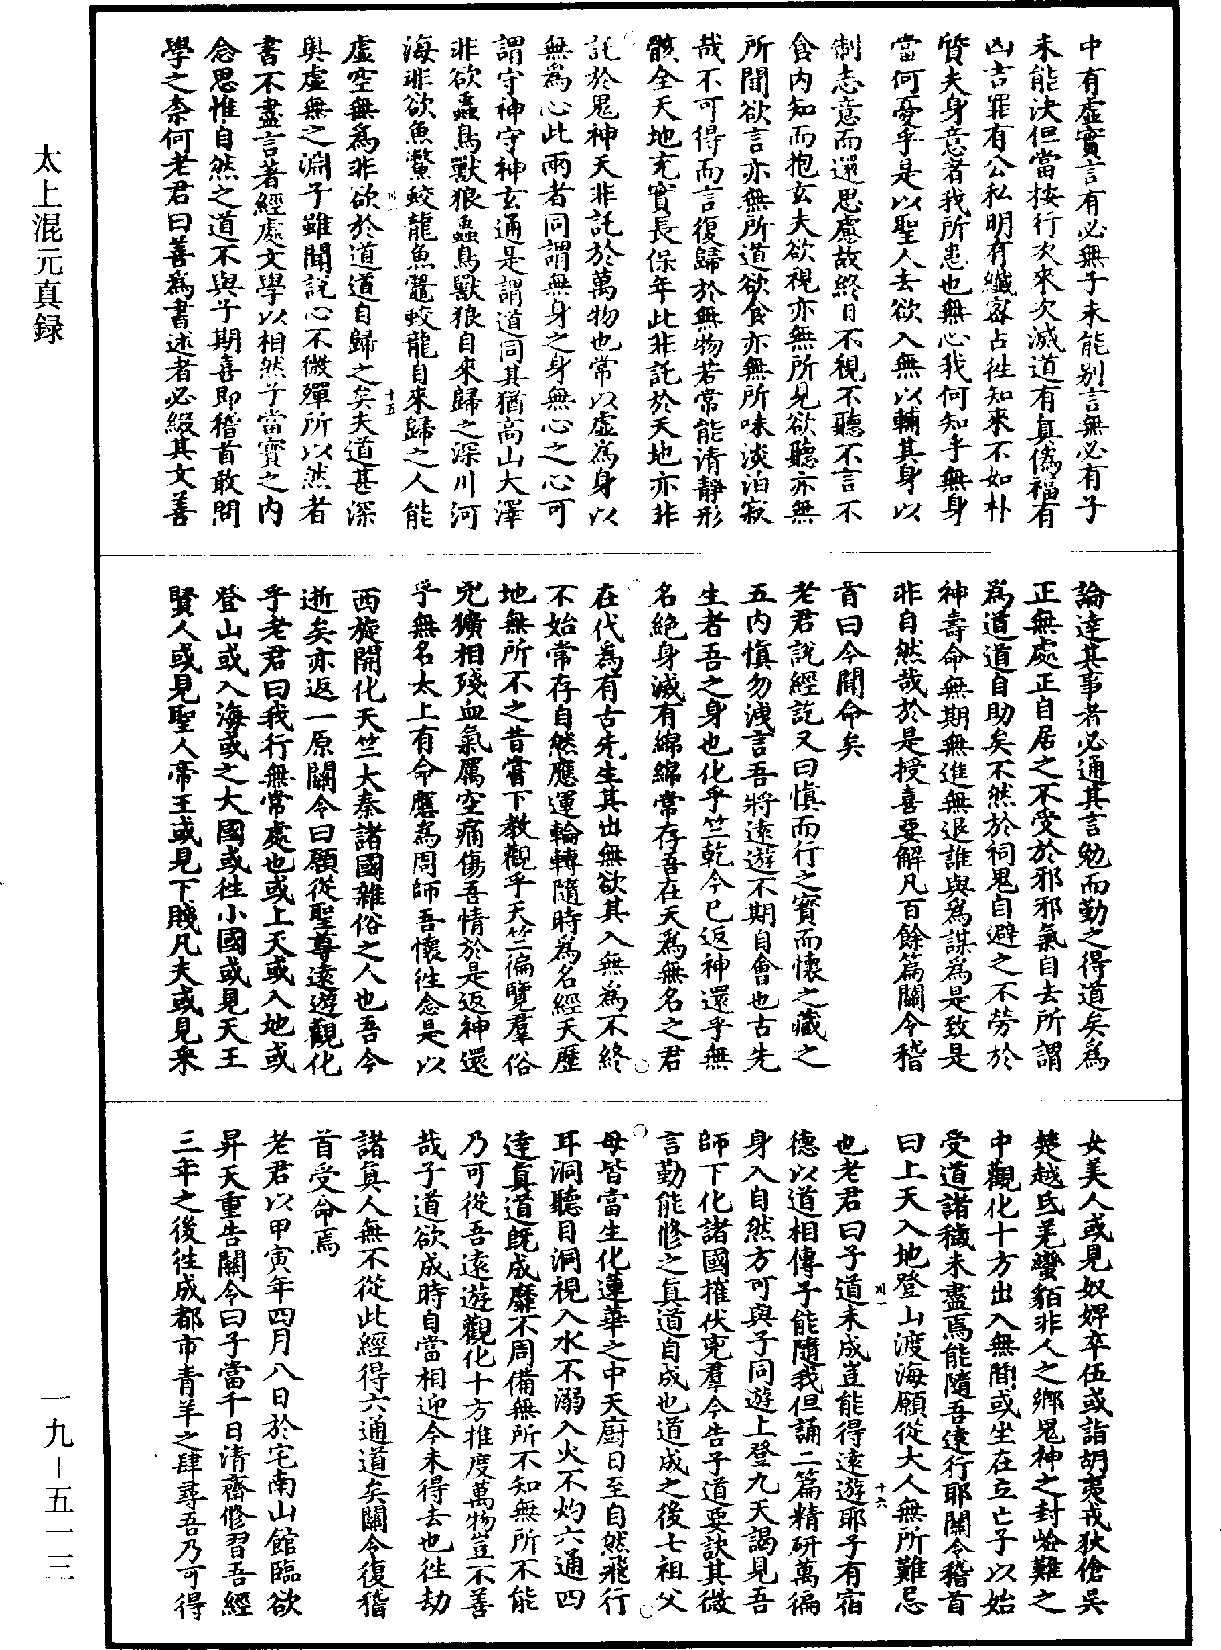 中有虛實言有必無子未能别言無必有子
未能決但當桉行次來次滅道有真偽福有
凶吉罪有公私明有纎密占往知來不如朴
質夫身意者我所患也無心我何知乎無身
當何憂乎是以聖人去欲入無以輔其身以
制志意而還思慮故終日不視不聽不言不
食内知而抱玄夫欲視亦無所見欲聽亦無
所聞欲言亦無所道欲食亦無所味淡泊寂
哉不可得而言復歸於無物若常能清靜形
骸全天地充實長保年此非託於天地亦非
託於鬼神天非託於萬物也常以虛為身以
無為心此兩者同謂無身之身無心之心可
謂守神守神玄通是謂道同其猶高山大澤
非欲蟲鳥獸狼蟲鳥獸狼自來歸之深川河
海非欲魚鱉蛟龍魚鼈蛟龍自來歸之人能
虛空無為非欲於道道自歸之矣夫道甚深
十五
奥虛無之淵子雖聞説心不微殫所以然者
書不盡言著經處文學以相然子當寳之内
念思惟自然之道不與子期喜即稽首敢問
學之柰何老君曰善為書述者必綴其文善
論達其事者必通其言勉而勤之得道矣為
正無處正自居之不受於邪邪氣自去所謂
為道道自助矣不然於祠鬼自避之不勞於
神壽命無期無進無退誰與為謀為是致是
非自然哉於是授喜要解凡百餘篇關令稽
首曰今聞命矣
老君説經訖又曰慎而行之寳而懷之藏之
五内慎勿洩言吾將遠遊不期自會也古先
生者吾之身也化乎竺乾今已返神還乎無
名絶身滅有綿綿常存吾在天為無名之君
在代為有古先生其出無欲其入無為不終
不始常存自然應運輪轉隨時為名經天歷
地無所不之昔嘗下教觀乎天竺徧覽羣俗
兇獷相殘血氣厲空痛傷吾情於是返神還
乎無名太上有命應為周師吾懷往念是以
西旋開化天竺大秦諸國雜俗之人也吾今
逝矣亦返一原關令曰願從聖尊遠遊觀化
乎老君曰我行無常處也或上天或入地或
登山或入海或之大國或往小國或見天王
賢人或見聖人帝王或見下賤凡夫或見采
女美人或見奴婢卒伍或詣胡夷戎狄傖吴
楚越氐羌蠻貊非人之鄉鬼神之封嶮難之
中觀化十方出入無間或坐在立亡子以始
受道諸穢未盡焉能隨吾遠行耶關令稽首
曰上天入地登山渡海願從大人無所難忌
十六
也老君曰子道未成豈能得遠遊耶子有宿
德以道相傳子能隨我但誦二篇精研萬徧
身入自然方可與子同遊上登九天謁見吾
師下化諸國摧伏兇羣今告子道要訣其微
言勤能修之真道自成也道成之後七祖父
母皆當生化蓮華之中天廚日至自然飛行
耳洞聽目洞視入水不溺入火不灼六通四
達真道既成靡不周備無所不知無所不能
乃可從吾遠遊觀化十方推度萬物豈不善
哉子道欲成時自當相迎今未得去也往劫
諸真人無不從此經得六通道矣關令復稽
首受命焉
老君以甲寅年四月八日於宅南山館臨欲
昇天重告關令曰子當千日清齋修習吾經
三年之後往成都市青羊之肆尋吾乃可得
太上混元真録
一九－五一二